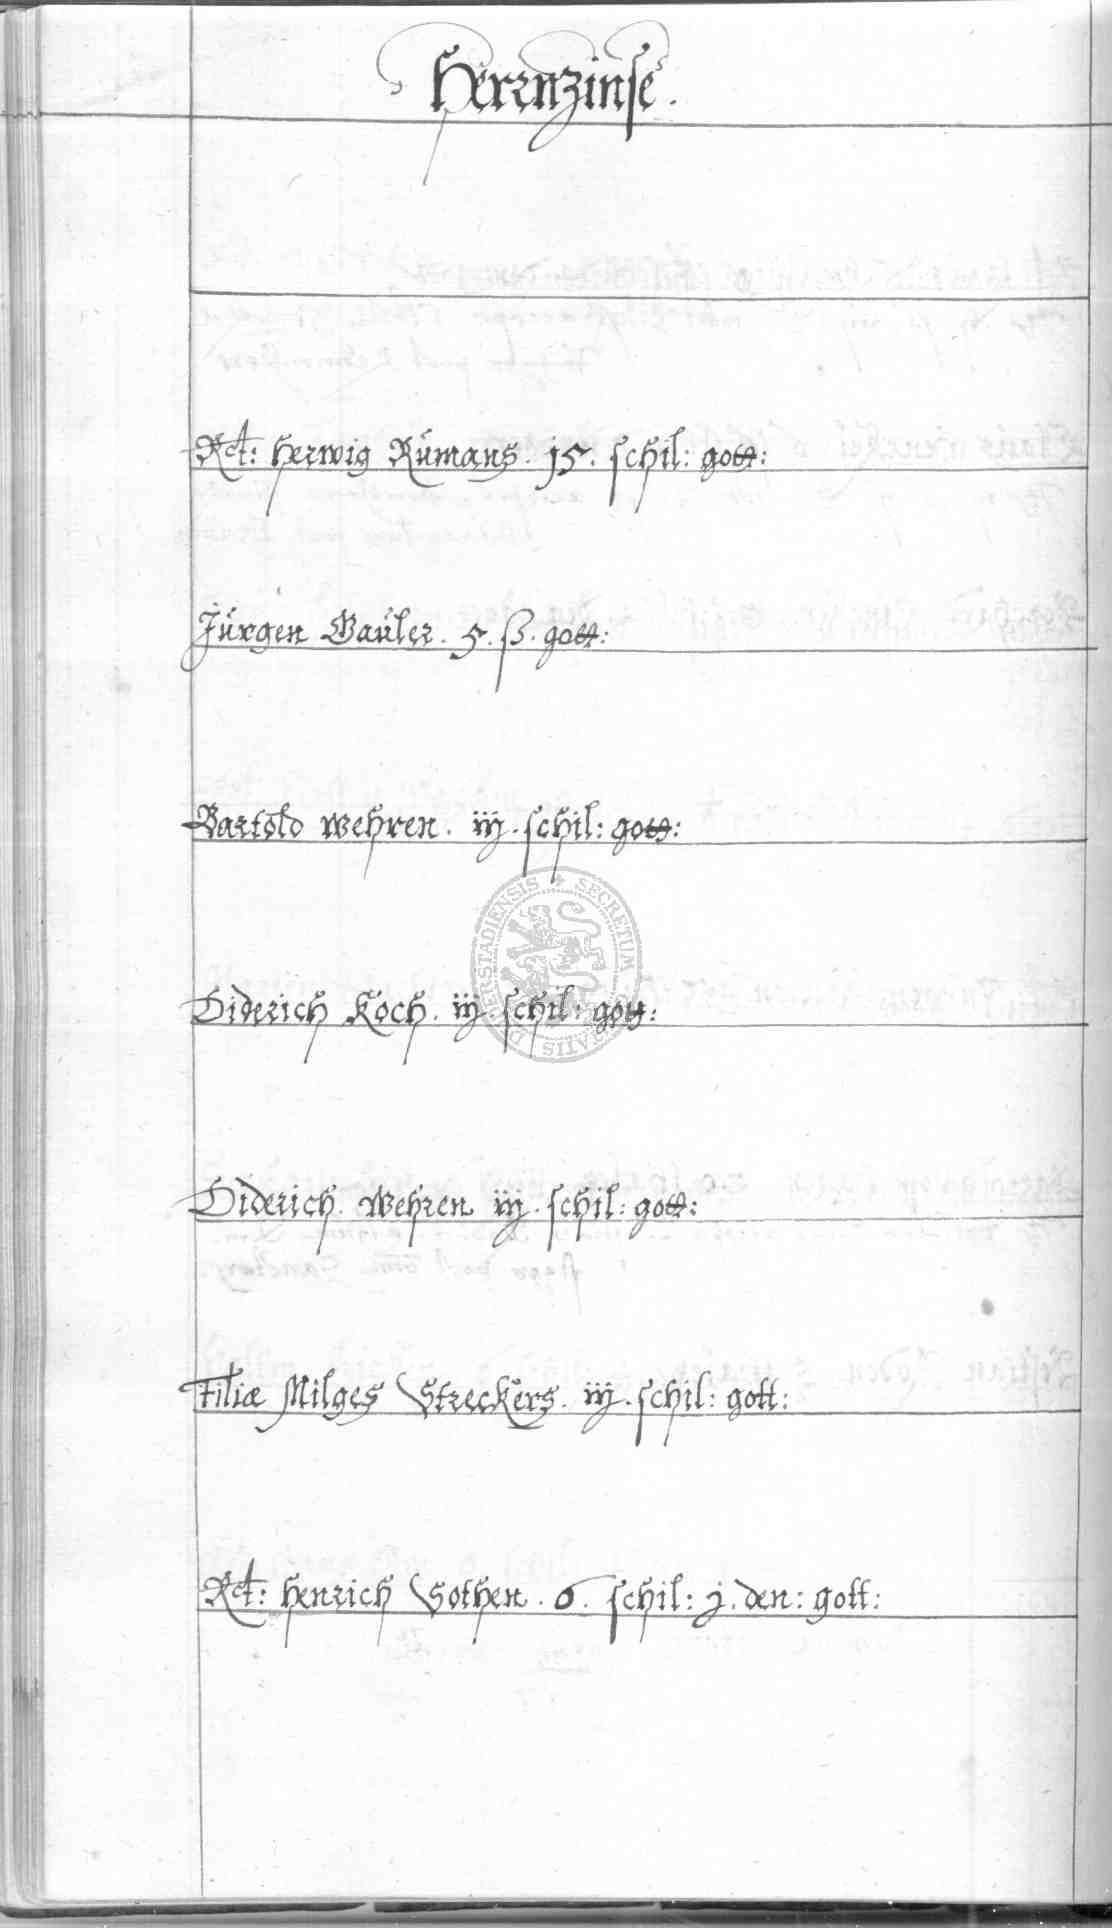 Herrnzinse.
Rct: Herwig Rümans. 15. schil: gott:
Jürgen Gaüler. 5. ß. gott:
Bartold Wehren. iij. schil: gott:
Diderich Koch. iij. schil: gott:
Diderich Wehren iij. schil: gott:
Filiæ Milges Streckers. iij. schil: gott:
Rct: Henrich Sothen. 6. schil: j. den: gott: